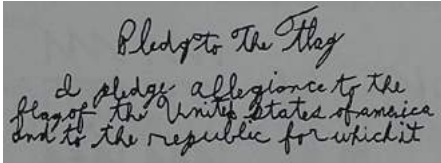 Pledge to The Flag
I pledge allegiance to the
flag of the United States of america
and to the republic for which it